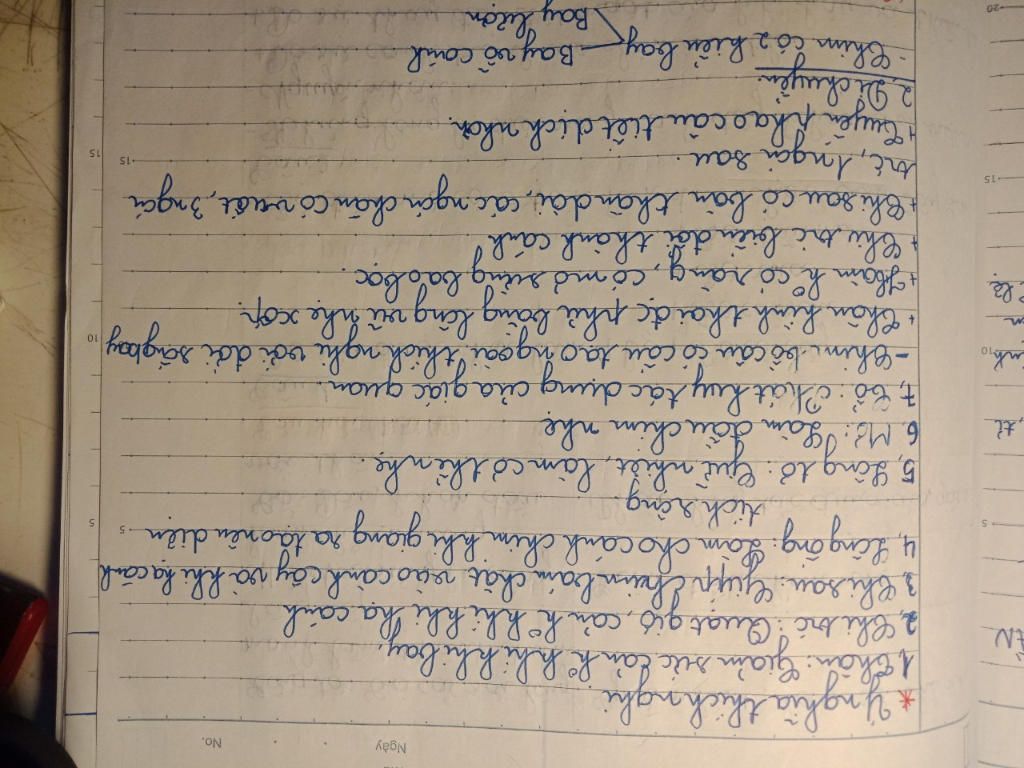 Ngày
No.
* Ý nghĩa thích nghi.
1, Thân: Giảm sức cản k° khí khi bay.
2, Chi trc: Quạt gió, cản k° khí khi hạ cánh
3, Chi sau: Giúp chim bám chặt vào cành cây và khi hạ cánh
4, Lông ống: Làm cho cánh chim khi giang ra tạo nên diện
tích rộng.
5, Lông tơ: Giữ nhiệt, làm cơ thể nhẹ.
6. Mỏ: Làm đầu chim nhẹ
7, Cổ: Phát huy tác dụng của giác quan.
- Chim bồ câu có cấu tạo ngoài thích nghi với đời sống bay
+ Thân hình thoi đc phủ bằng lông vũ nhẹ xốp.
+ Hàm k° có răng, có mỏ sừng bao bọc.
+ Chi trc biến đổi thành cánh.
+ Chi sau có bàn chân dài, các ngón chân có vuốt, 3 ngón
trc, 1 ngón sau.
+ Tuyến phao câu tiết dịch nhờn.
2, Di chuyển
- Chim có 2 kiểu bay — Bay vỗ cánh
Bay lượn
5
5
10
15
15
20
5
10
15